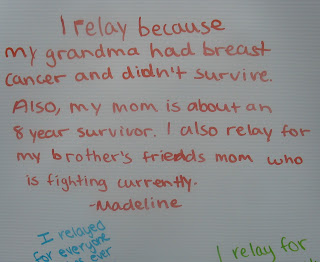 I relay because
my grandma had breast
cancer and didn't survive.
Also, my mom is about an
8 year survivor. I also relay for
my brother's friedds mom who
is fighting currently.
-Madeline
I relayed
for everyone
ever
I relay for